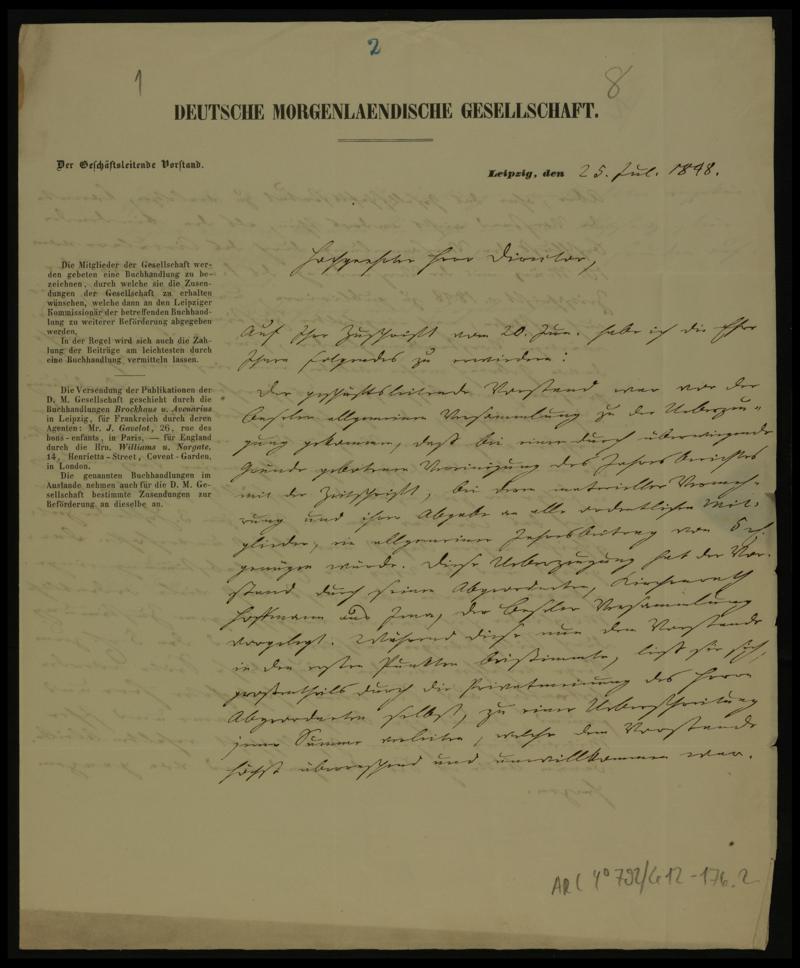 2
1
8
DEUTSCHE MORGENLAENDISCHE GESELLSCHAFT.
Der Geschäftsleitende Vorstand.
Leipzig, den 25. Jul. 1848.
Die Mitglieder der Gesellschaft wer-
den gebeten eine Buchhandlung zu be-
zeichnen, durch welche sie die Zusen-
dungen der Gesellschaft zu erhalten
wünschen, welche dann an den Leipziger
Kommissionär der betreffenden Buchhand-
lung zu weiterer Beförderung abgegeben
werden.
In der Regel wird sich auch die Zah-
lung der Beiträge am leichtesten durch
eine Buchhandlung vermitteln lassen.
Die Versendung der Publikationen der
D. M. Gesellschaft geschieht durch die
Buchhandlungen Brockhaus u. Avenarius
in Leipzig, für Frankreich durch deren
Agenten: Mr. J. Gavelot, 26, rue des
bons-enfants, in Paris, — für England
durch die Hrn. Williams u. Norgate,
14, Henrietta-Street, Covent-Garden,
in London.
Die genannten Buchhandlungen im
Auslande nehmen auch für die D. M. Ge-
sellschaft bestimmte Zusendungen zur
Beförderung an dieselbe an.
Hochgeehrter Herr Director,
Auf Ihre Zuschrift vom 20. Jun. habe ich die Ehre
Ihnen Folgendes zu erwiedern:
Der geschäftsleitende Vorstand war vor der
Baseler allgemeinen Versammlung zu der Ueberzeu-
gung gekommen, daß bei einer durch überwiegende
Gründe gebotenen Vereinigung des Jahresberichtes
mit der Zeitschrift, bei deren materieller Vermeh-
rung und ihrer Abgabe an alle ordentlichen Mit-
glieder, ein allgemeiner Jahresbeitrag von 5
genügen würde. Diese Ueberzeugung hat der Vor-
stand durch seinen Abgeordneten, Kirchenrath
Hoffmann aus Jena, der Baseler Versammlung
vorgelegt. Während diese nun dem Vorstande
in den ersten Punkten beistimmte, ließ sie sich,
großentheils durch die Privatmeinung des Herrn
Abgeordneten selbst, zu einer Ueberschreitung
jener Summe verleiten, welche dem Vorstande
höchst überraschend und unwillkommen war.